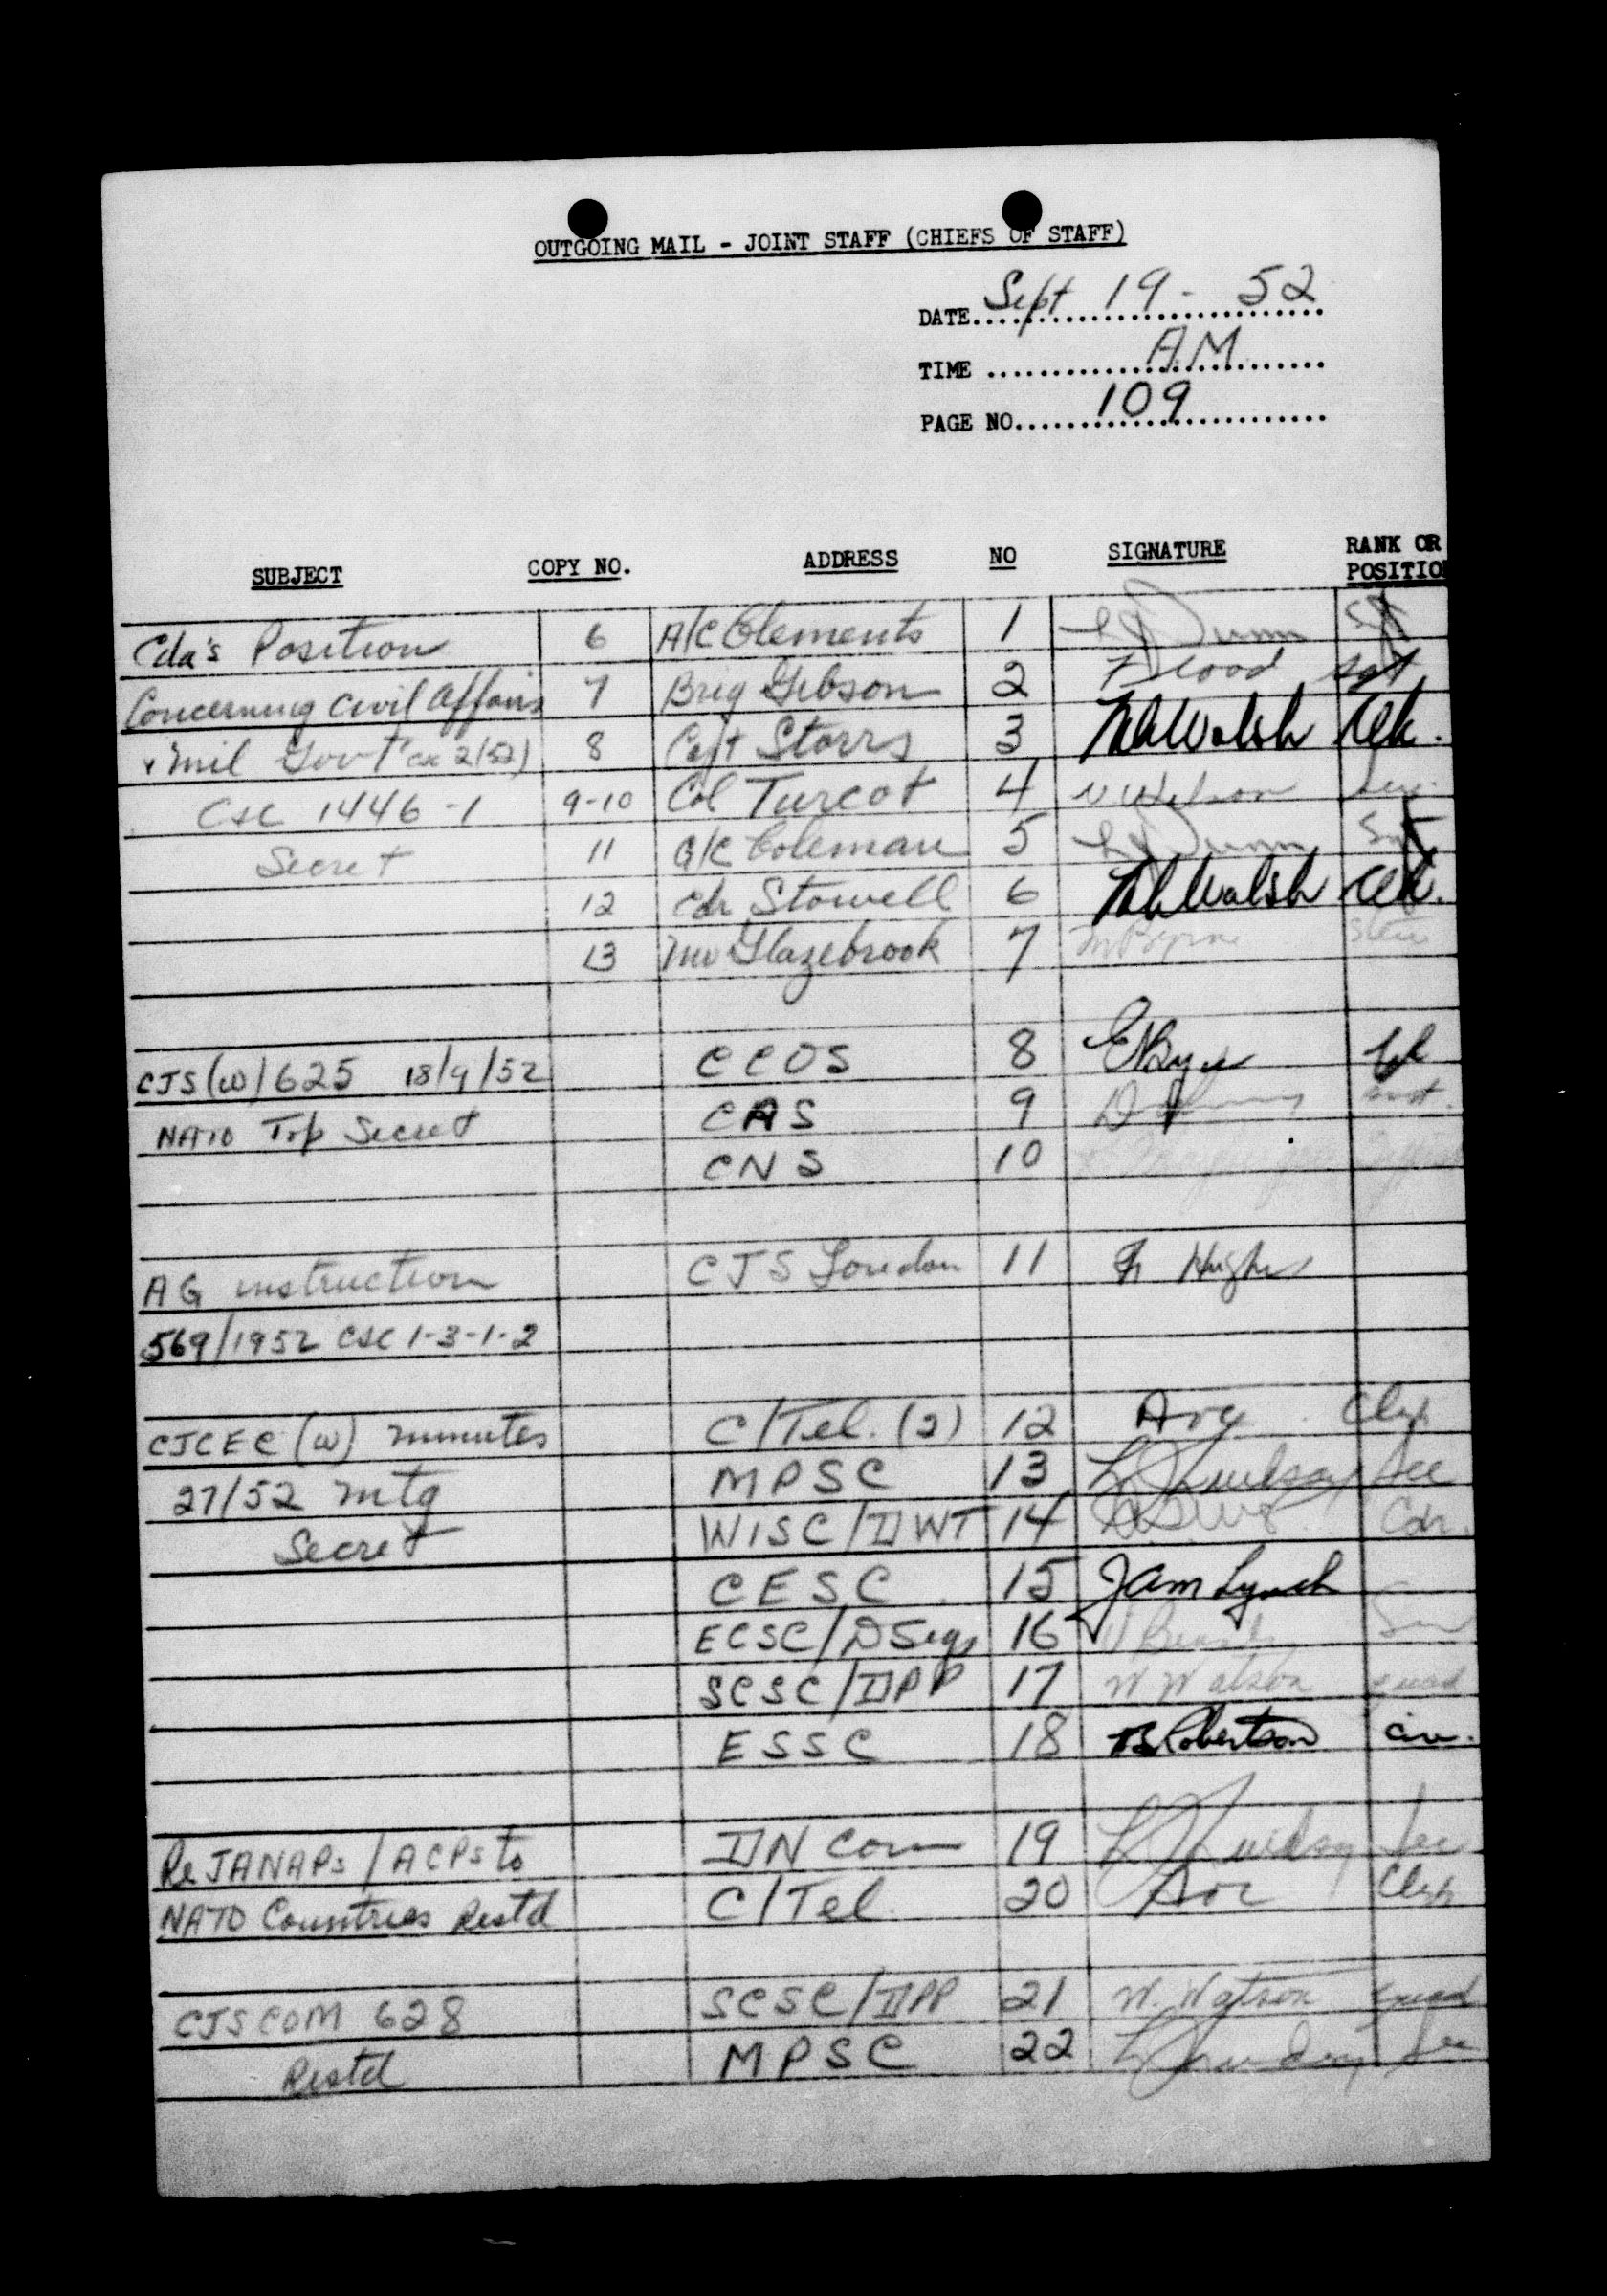 OUTGOING MAIL - JOINT STAFF (CHIEFS OF STAFF)
DATE Sept 19 - 52
TIME A.M.
PAGE NO. 109
SUBJECT COPY NO. ADDRESS NO SIGNATURE RANK OR POSITIO
Cda's Position 6 A/C Clements 1 Dunn
Concerning Civil Affairs 7 Brig Gibson 2 Flood Sgt
& Mil Gov't 2/52) 8 Capt Storrs 3 Walsh Clk.
CSC 1446-1 9-10 Col Turcot 4
Secret 11 G/C Coleman 5 Dunn
12 Cdr Stowell 6 Walsh Clk.
13 Mr Glazebrook 7 M Byrne Sten
CJS(W) 625 18/9/52 CCOS 8
NATO Top Secret CAS 9
CNS 10
AG instruction CJS London 11 Hughes
569/1952 CSC 1-3-1-2
CJCEC (W) minutes C/Tel. (2) 12
27/52 mtg MPSC 13 Sec
Secret WISC/DWT 14
CESC 15 Jam Lynch
ECSC/DSigs 16
SCSC/DPP 17 W Watson
ESSC 18 Robertson Civ.
Re JANAPs / ACPs to DN Com 19
NATO Countries Restd C/Tel. 20
CJSCOM 628 SCSC/DPP 21 W. Watson
Restd MPSC 22